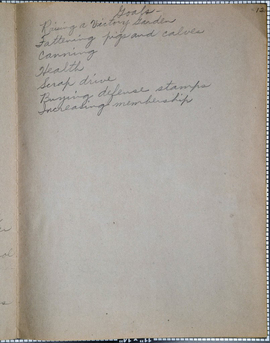 Goals.
12
Rising a Victory Garden
Fattening pigs and calves
Canning
Health
Scrap drive
Buying defense stamps
Increasing membership